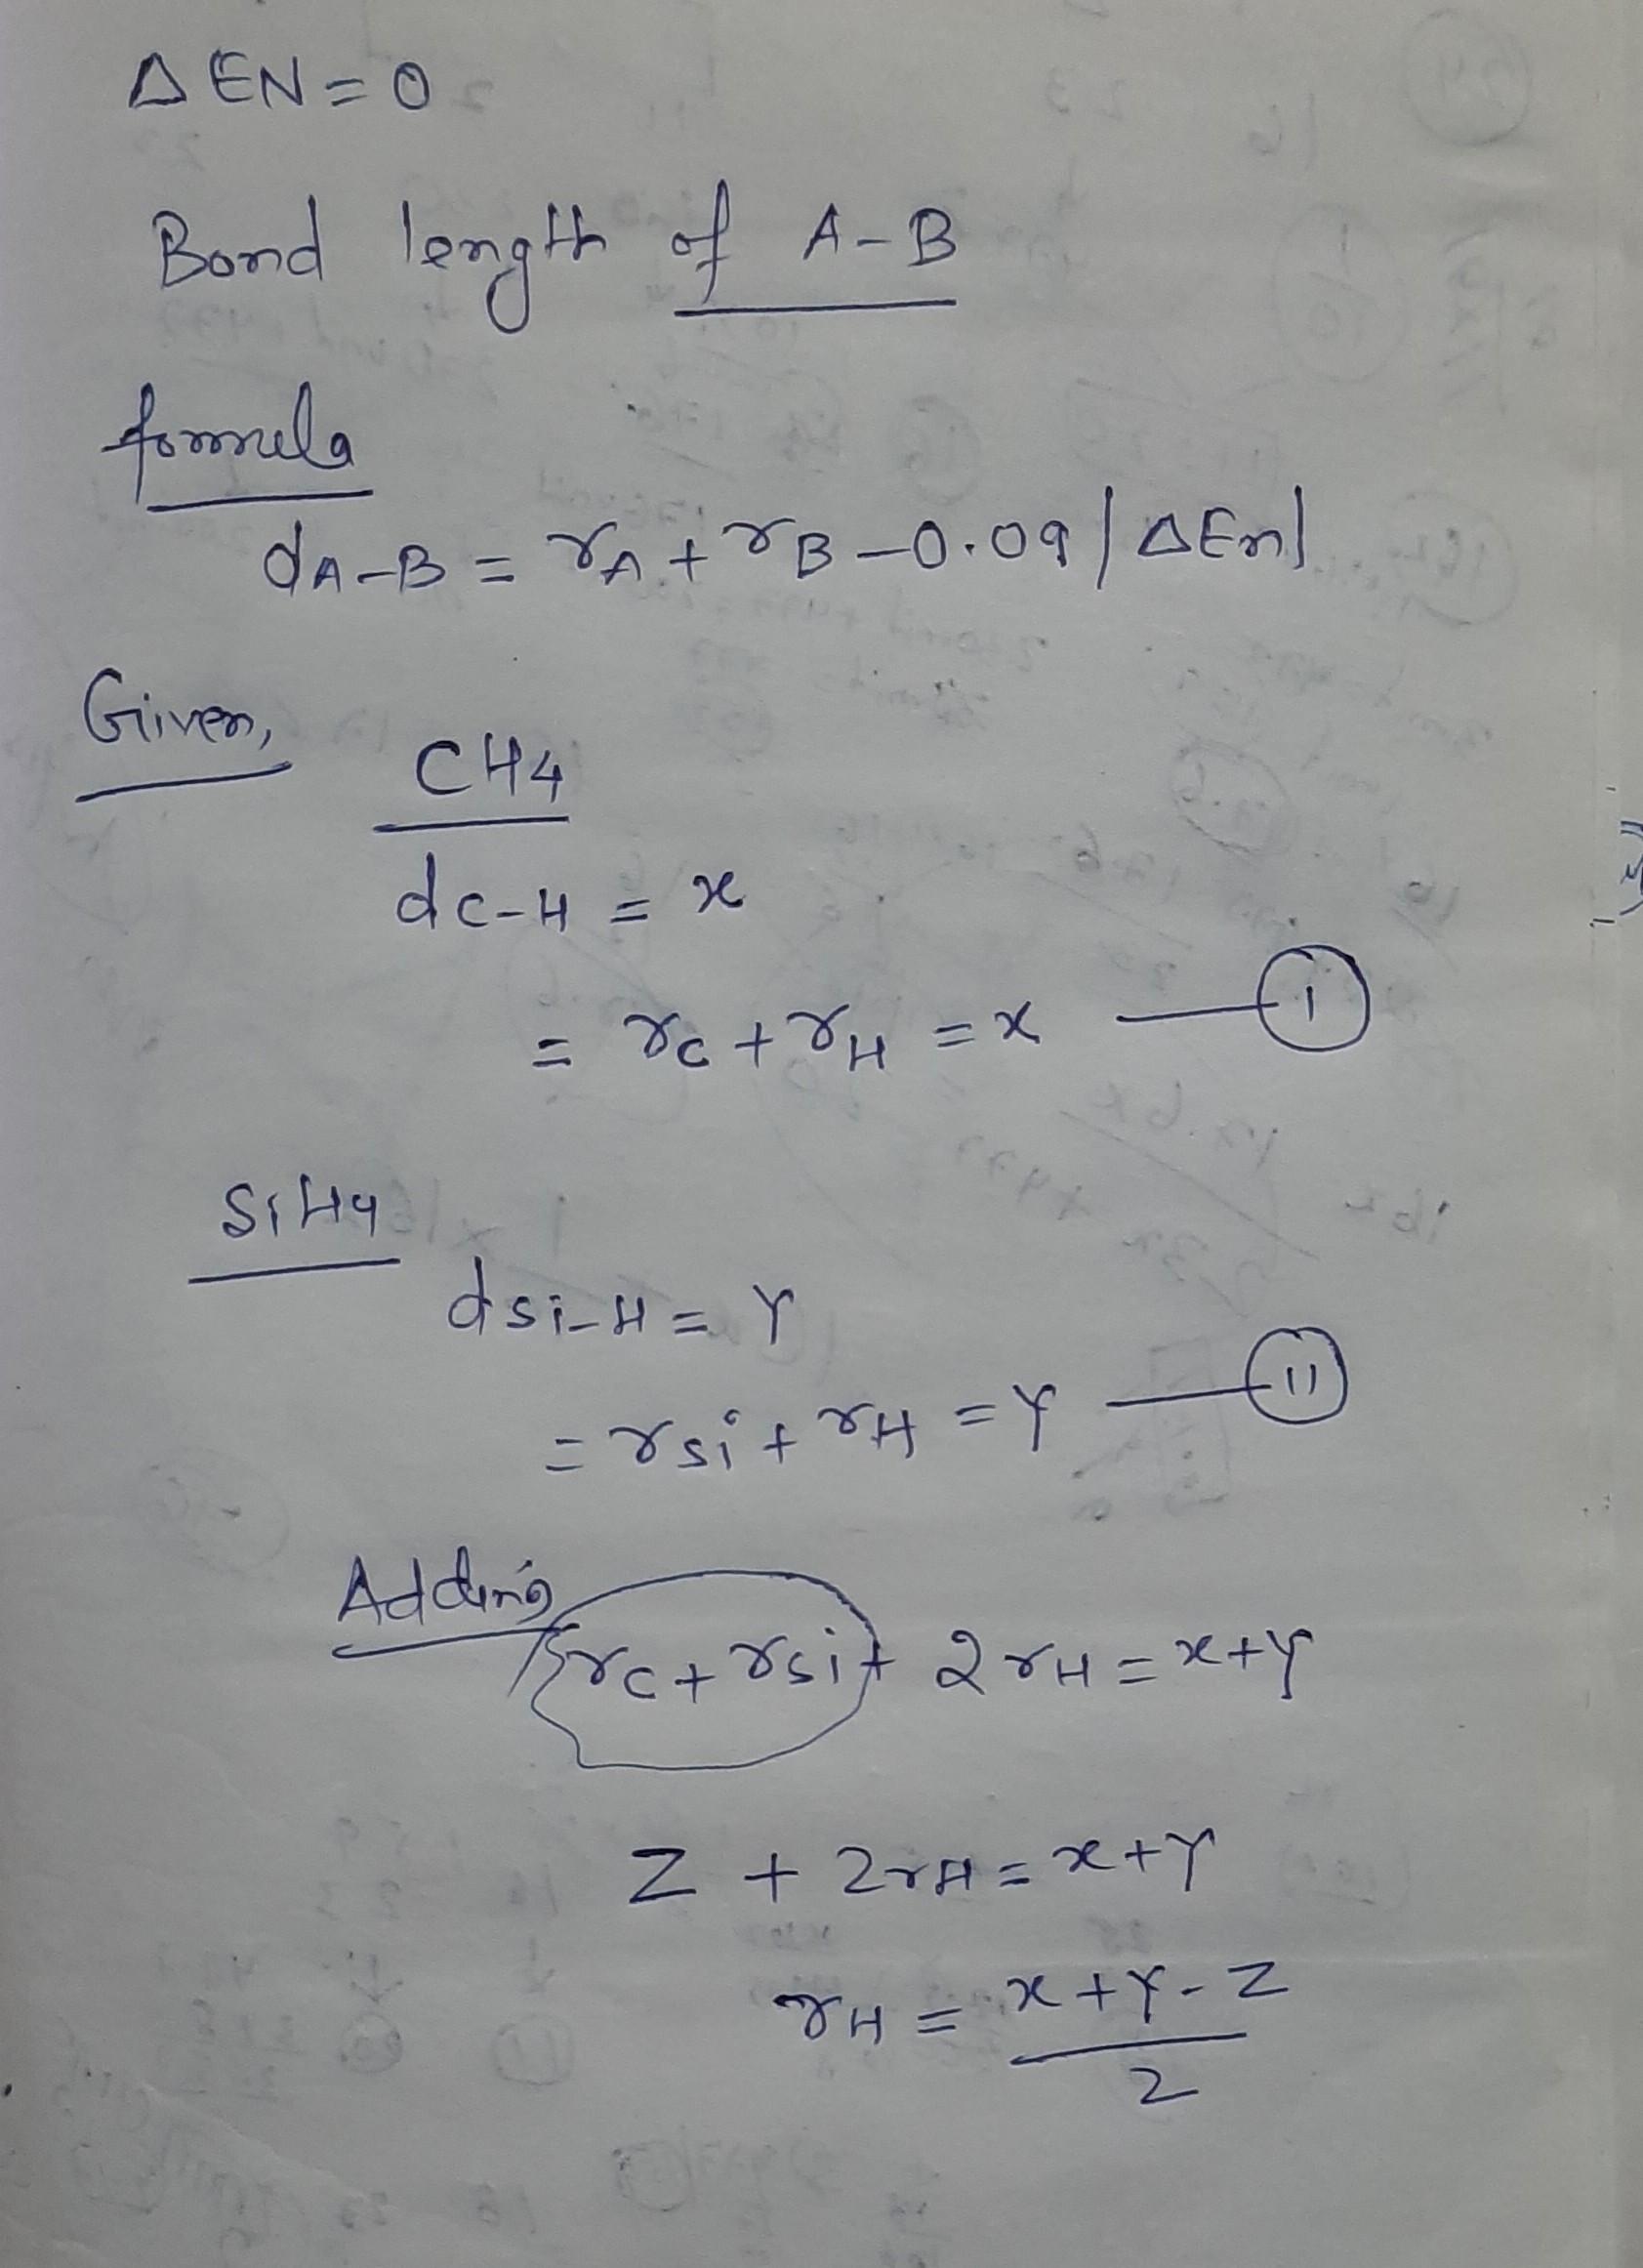 Δ EN = 0
Bond length of A-B
formula
dA-B = rA + rB - 0.09 |ΔEn|
Given,
CH4
dC-H = x
= rC + rH = x — I
SiH4
dSi-H = Y
= rSi + rH = Y — II
Adding
rC + rSi + 2rH = x+y
Z + 2rH = x+Y
rH = x+Y-Z
2